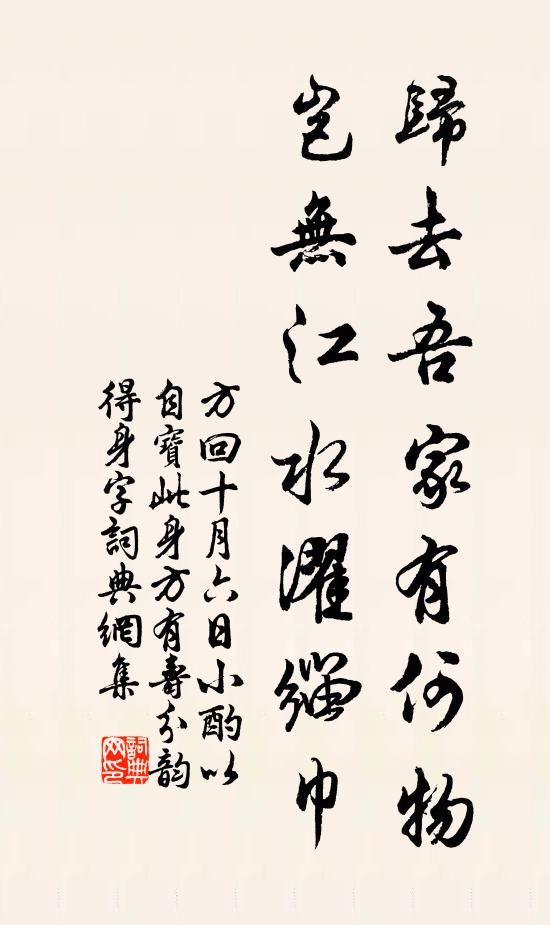 歸去吾家有何物
豈無江水濯纓巾
方回十月六日小酌以
自寶此身方有壽分韵
得身字詞典網集
詞典
网印